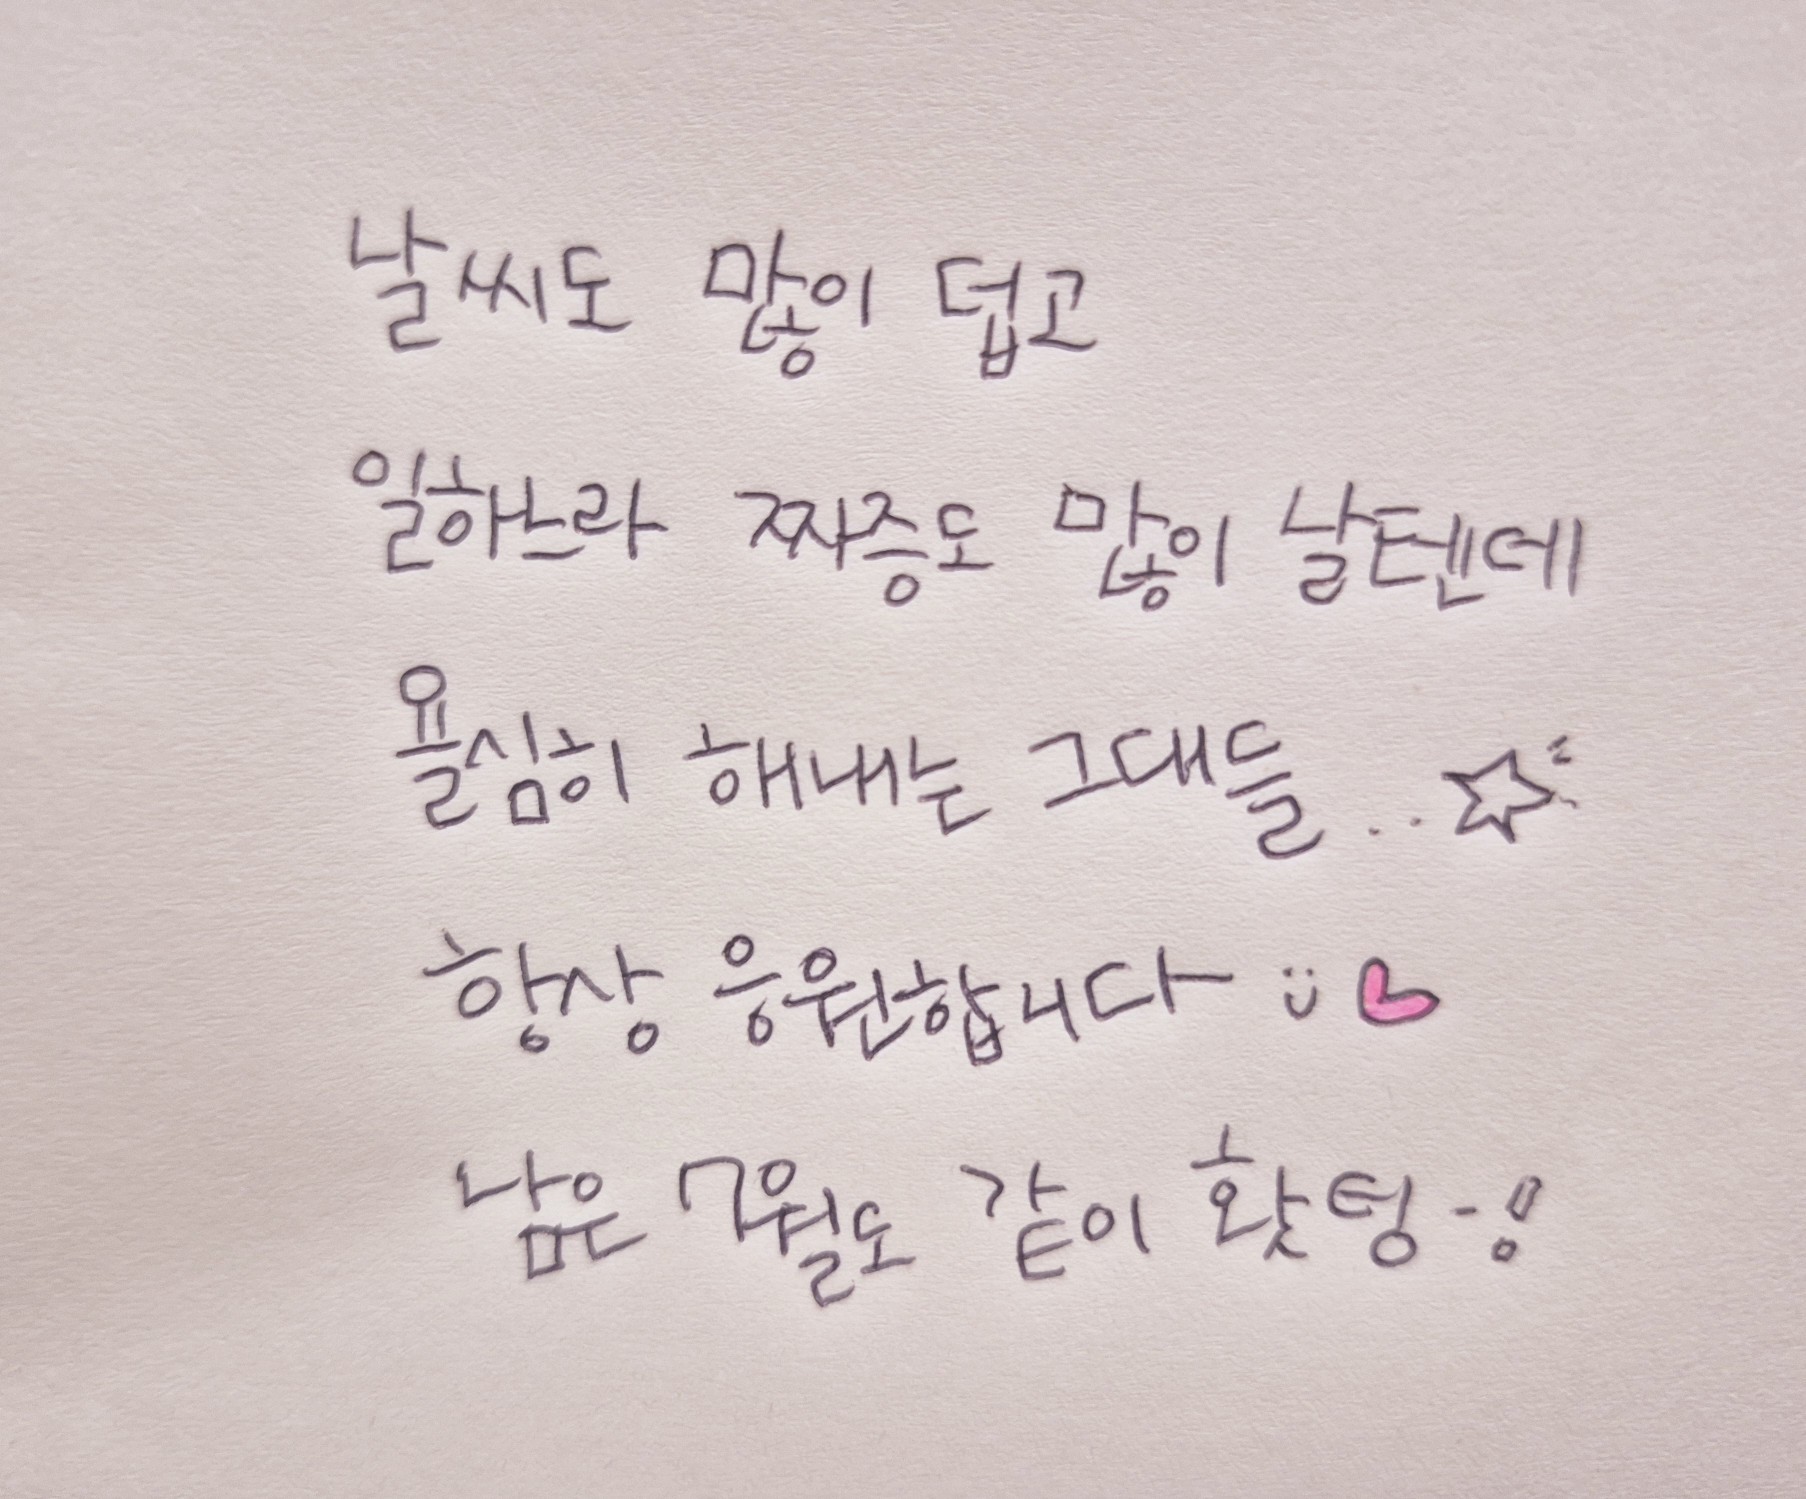 날씨도 많이 덥고
일하느라 짜증도 많이 날텐데
욜심히 해내는 그대들.. ☆
항상 응원합니다 :) ♡
남은 7월도 같이 홧텅-!